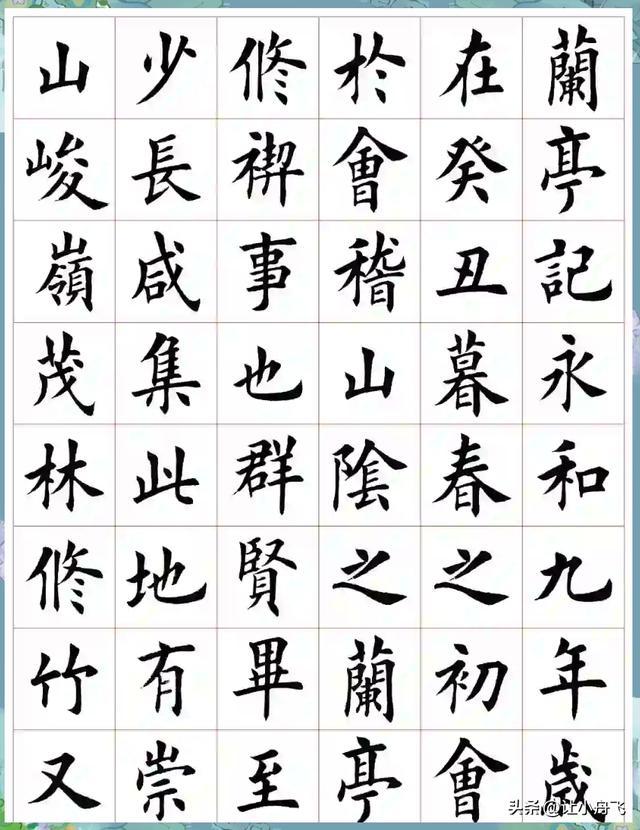 蘭亭記永和九年歲
在癸丑暮春之初會
於會稽山陰之蘭亭
修禊事也群賢畢至
少長咸集此地有崇
山峻嶺茂林修竹又
头条@让小舟飞